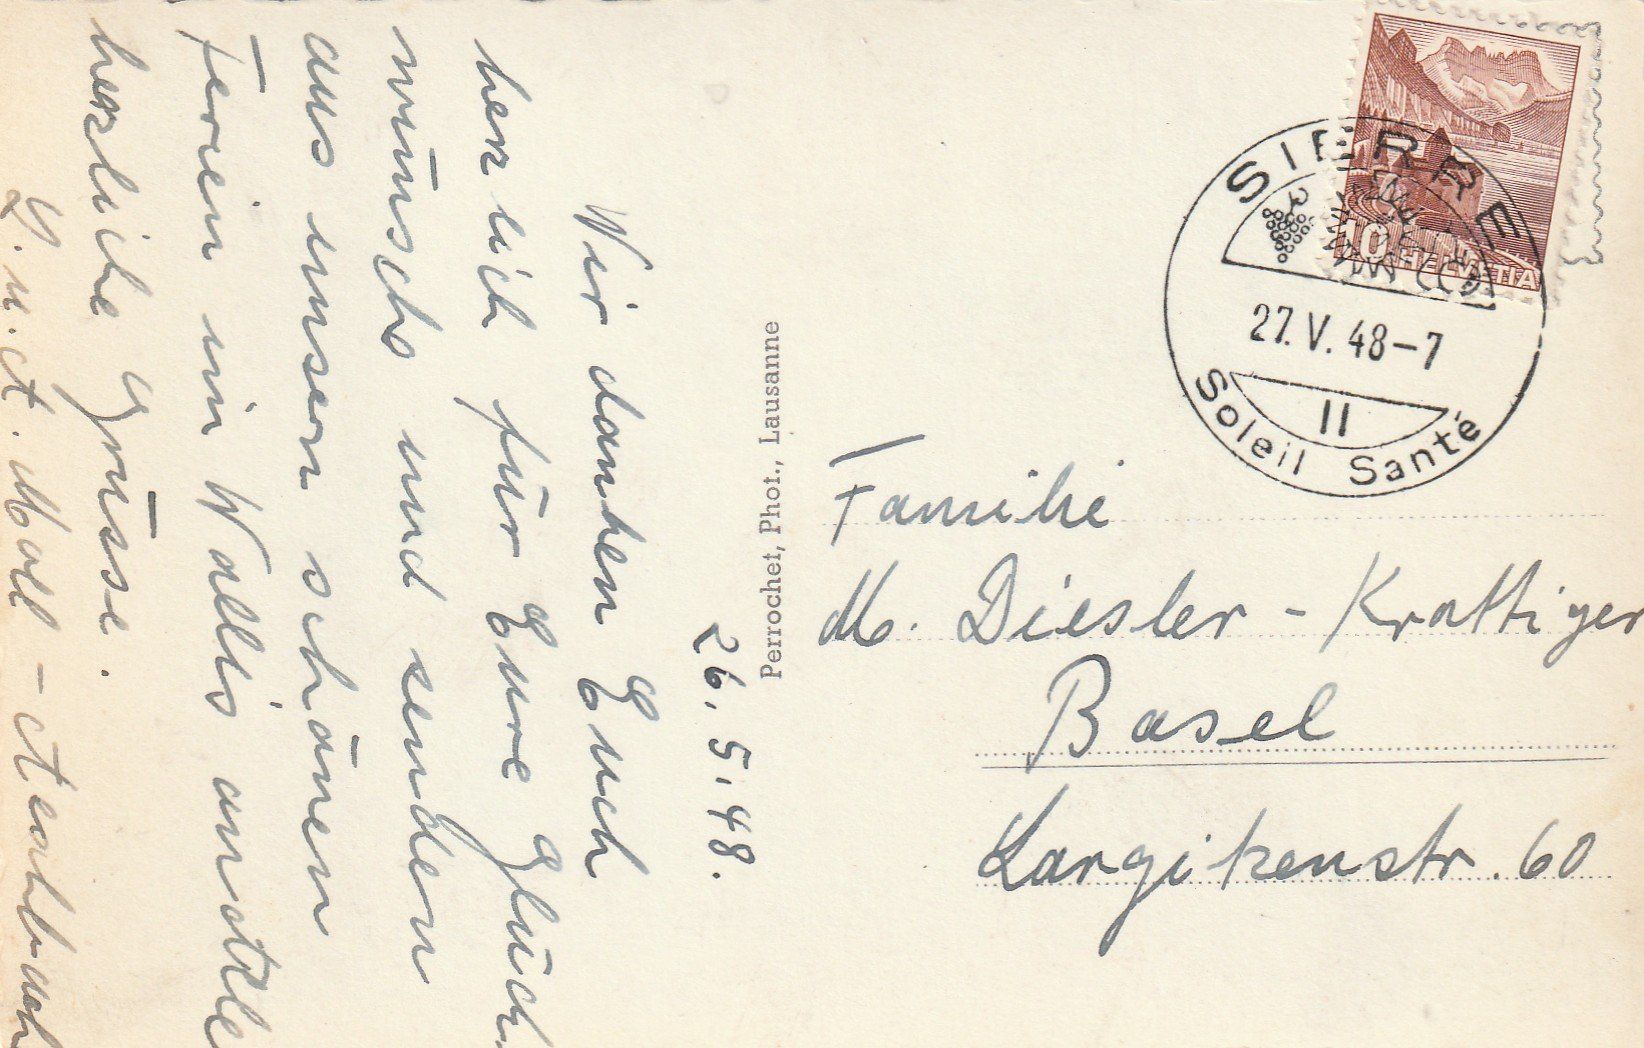 26.5.48.
Wir danken Euch
herzlich für Eure Glück
wünsche und senden
aus unsern schönen
Ferien im Wallis
herzliche Grüsse.
Perrochet, Phot., Lausanne
SIERRE
27.V.48-7
II
Soleil Santé
10 HELVETIA
Familie
M. Diesler - Krattiger
Basel
Largitzenstr. 60